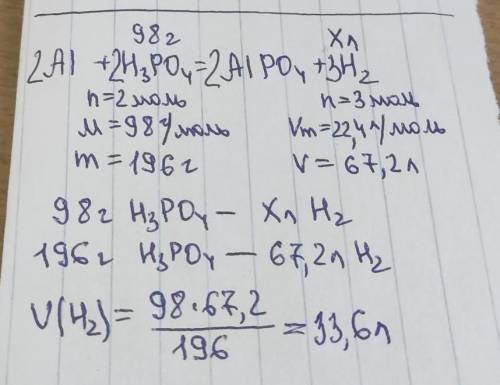 98г Xл
2Al + 2H₃PO₄ = 2AlPO₄ + 3H₂
n = 2 моль n = 3 моль
M = 98 г/моль Vm = 22,4 л/моль
m = 196 г V = 67,2 л
98г H₃PO₄ — Xл H₂
196г H₃PO₄ — 67,2л H₂
V(H₂) = 98·67,2 / 196 = 33,6л